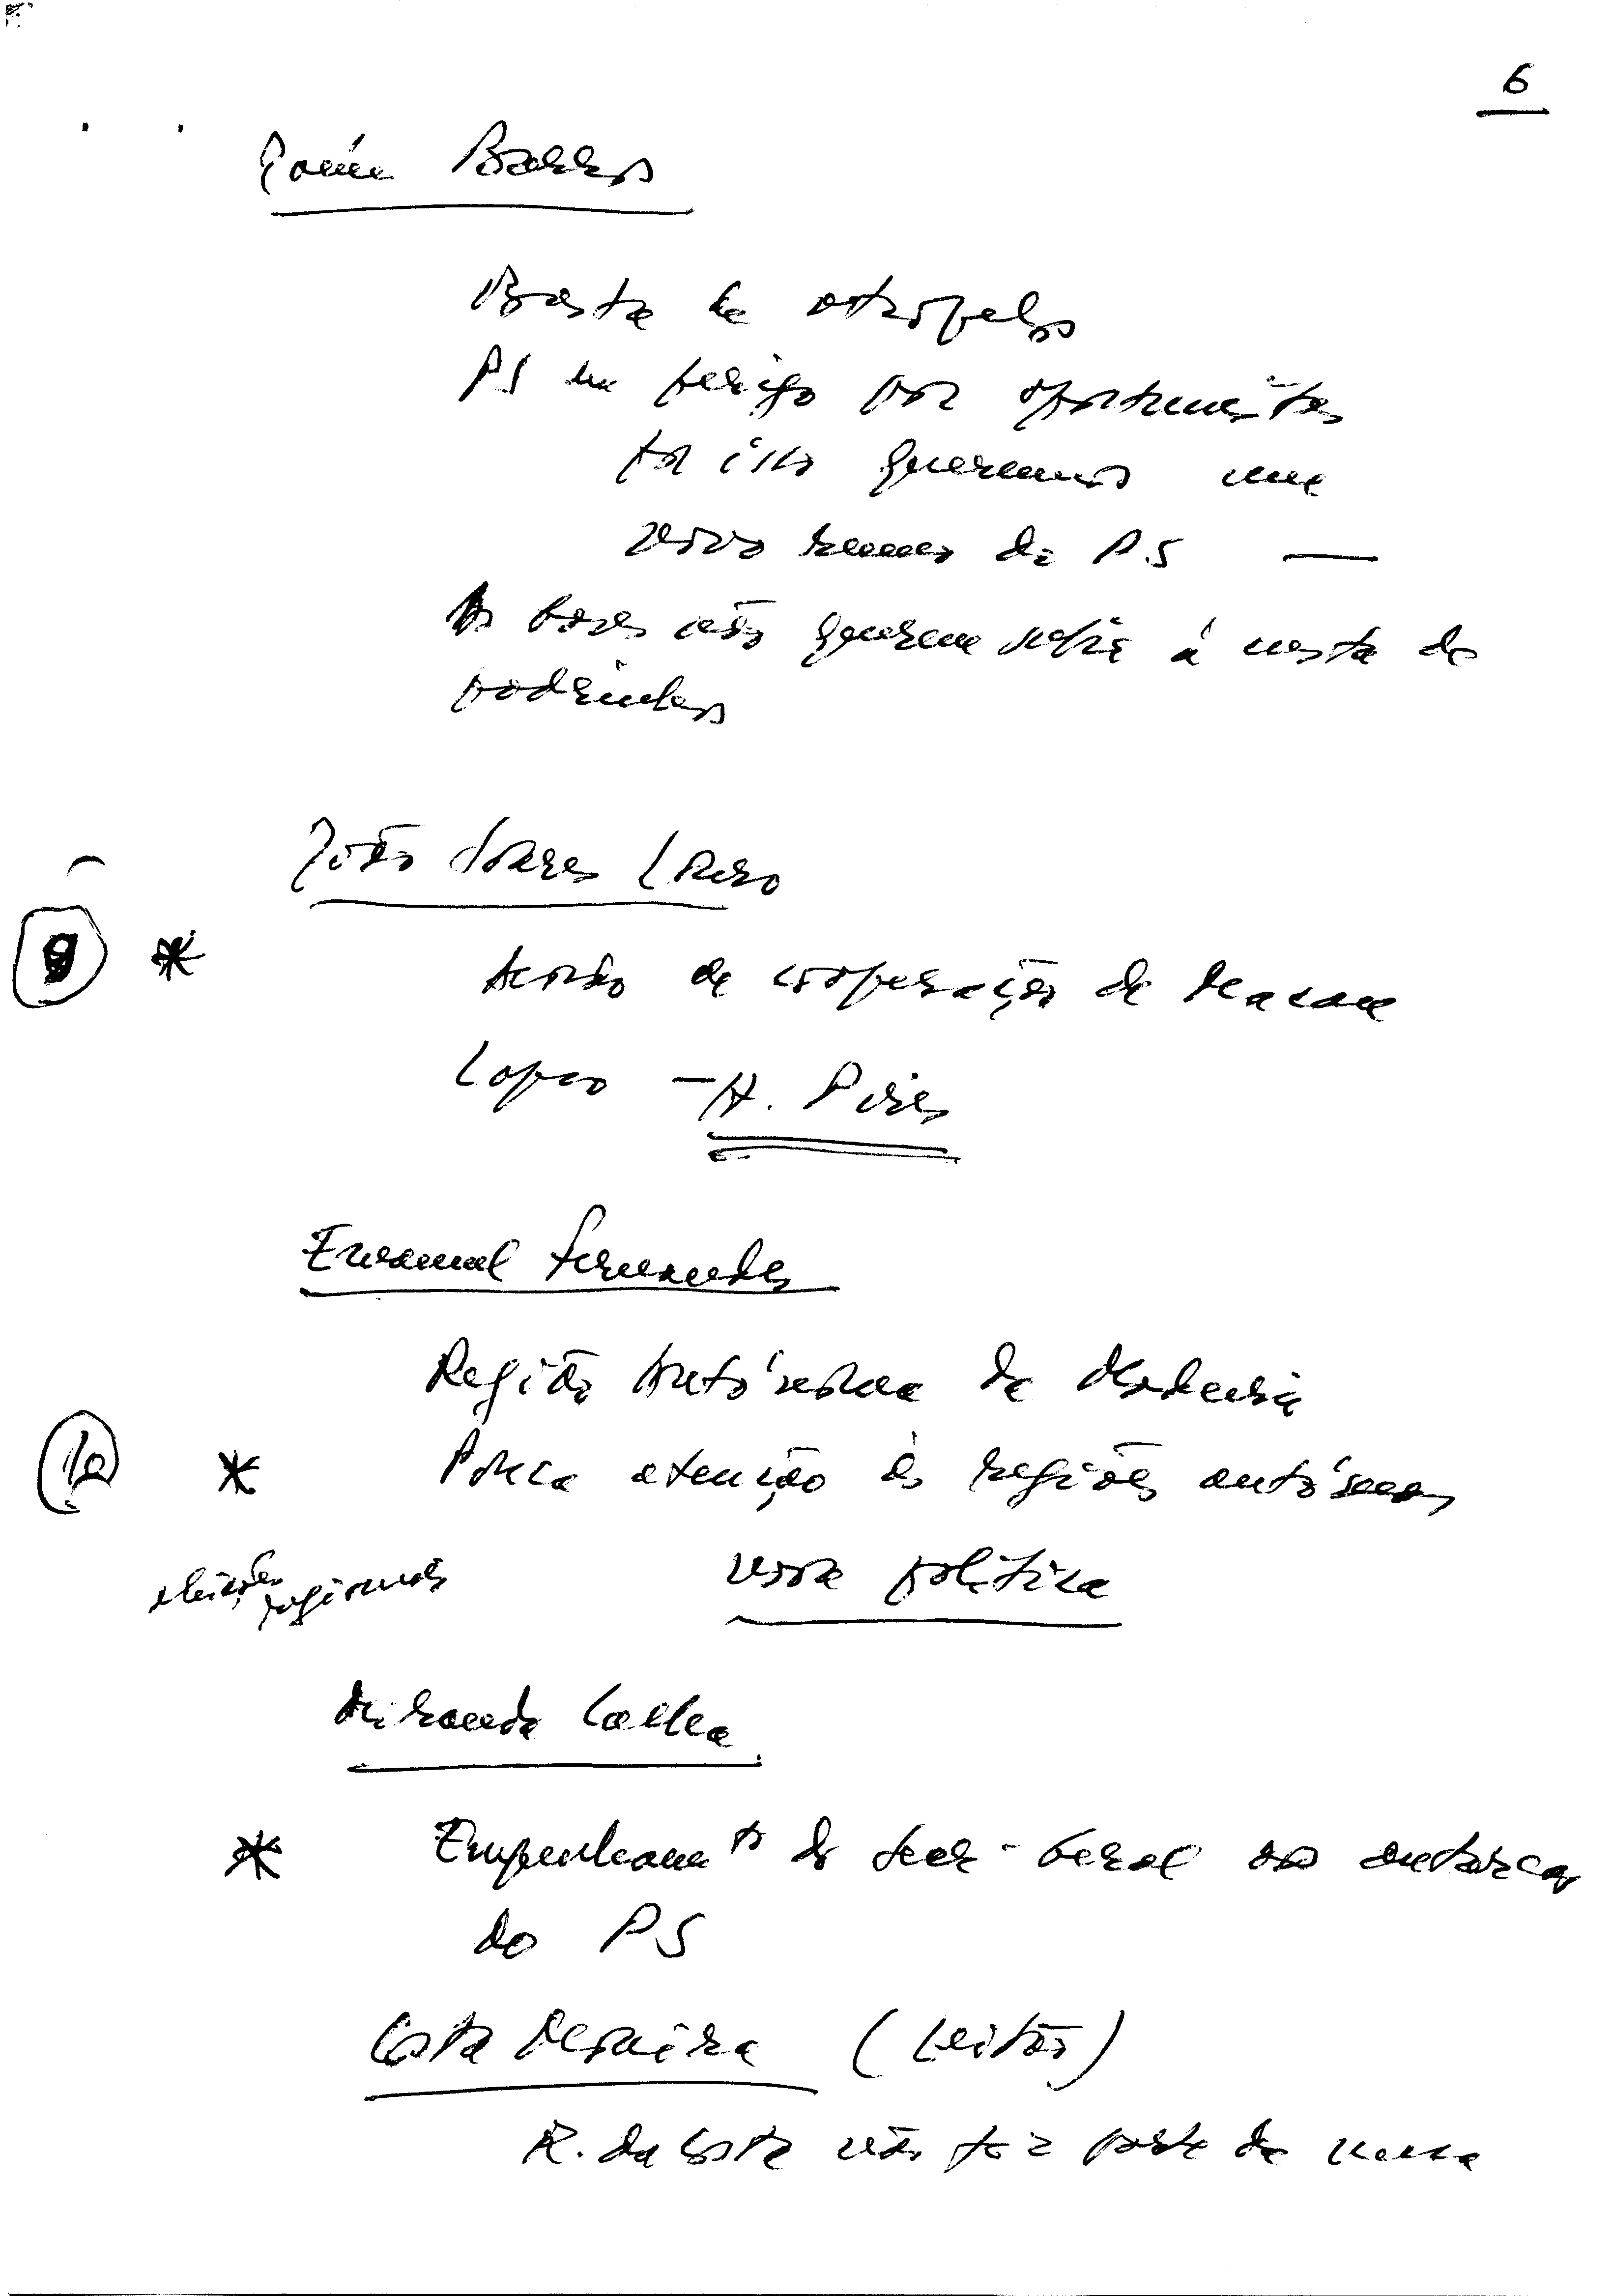 6
Barros
Basta de atropelos
PS em perigo por oportunistas
por isso queremos uma
novo rumo do P.S —
As bases não querem subir à custa de
padrinhos
João Soares Louro
9 * Acordo de cooperação de Macau
Lopes — A. Pires
Emanuel Fernandes
Região Autónoma da Madeira
10 * Pouca atenção às regiões autónomas
eleições regionais
nova política
Miranda Calha
* Empenhamto do Secr-Geral os autarcas
do PS
Costa Moreira (Leitão)
R. da Costa não faz parte da mesa